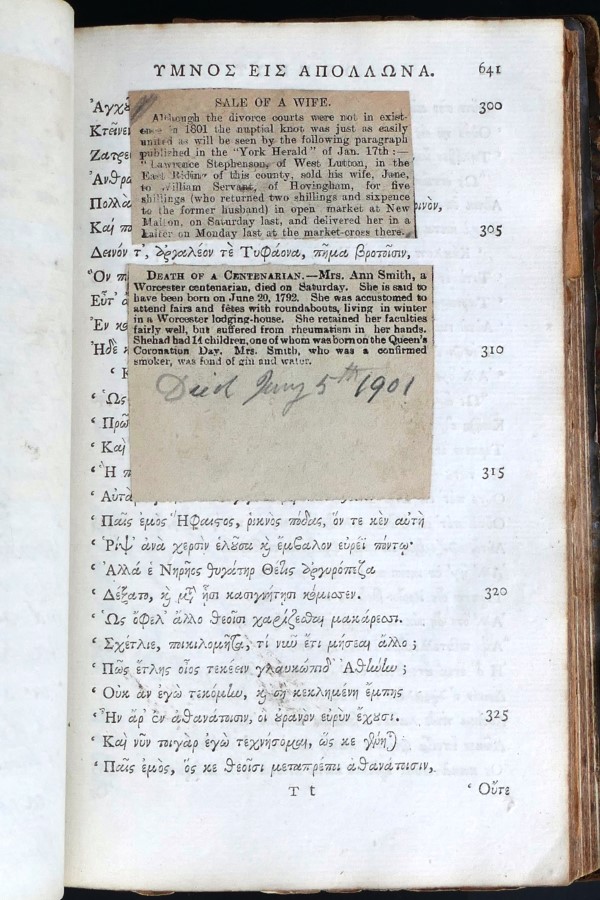 ΥΜΝΟΣ ΕΙΣ ΑΠΟΛΛΩΝΑ. 641
300
SALE OF A WIFE.
Although the divorce courts were not in exist-
ence in 1801 the nuptial knot was just as easily
untied as will be seen by the following paragraph
published in the "York Herald" of Jan. 17th:—
"Lawrence Stephenson, of West Lutton, in the
East Riding of this county, sold his wife, Jane,
to William Servant, of Hovingham, for five
shillings (who returned two shillings and sixpence
to the former husband) in open market at New
Malton, on Saturday last, and delivered her in a
halter on Monday last at the market-cross there.
305
Δεινόν τ', ἀργαλέον τὲ Τυφάονα, πῆμα βροτοῖσιν,
DEATH OF A CENTENARIAN.—Mrs. Ann Smith, a
Worcester centenarian, died on Saturday. She is said to
have been born on June 20, 1792. She was accustomed to
attend fairs and fêtes with roundabouts, living in winter
in a Worcester lodging-house. She retained her faculties
fairly well, but suffered from rheumatism in her hands.
Shehad had 14 children, one of whom was born on the Queen's
Coronation Day. Mrs. Smith, who was a confirmed
smoker, was fond of gin and water.
310
Died Jany 5th 1901
315
‘ Παῖς ἐμὸς Ἥφαιστος, ῥικνὸς πόδας, ὅν τε κὲν αὐτὴ
‘ Ῥίψ' ἀνὰ χερσὶν ἑλοῦσα καὶ ἔμβαλον εὐρέϊ πόντῳ·
‘ Ἀλλά ἑ Νηρῆος θυγάτηρ Θέτις ἀργυρόπεζα
‘ Δέξατο, καὶ μετὰ ᾗσι κασιγνήτῃσι κόμισσεν. 320
‘ Ὡς ὄφελ' ἄλλο θεοῖσι χαρίζεσθαι μακάρεσσι.
‘ Σχέτλιε, ποικιλομῆτα, τί νῦν ἔτι μήσεαι ἄλλο ;
‘ Πῶς ἔτλης οἶος τεκέειν γλαυκώπιδ' Ἀθήνην ;
‘ Οὐκ ἂν ἐγὼ τεκόμην, καὶ σὴ κεκλημένη ἔμπης
‘ Ἦν ἄρ' ἐν ἀθανάτοισιν, οἳ οὐρανὸν εὐρὺν ἔχουσι. 325
‘ Καὶ νῦν τοιγὰρ ἐγὼ τεχνήσομαι, ὥς κε γένηται
‘ Παῖς ἐμὸς, ὅς κε θεοῖσι μεταπρέποι ἀθανάτοισιν,
T t ‘ Οὔτε